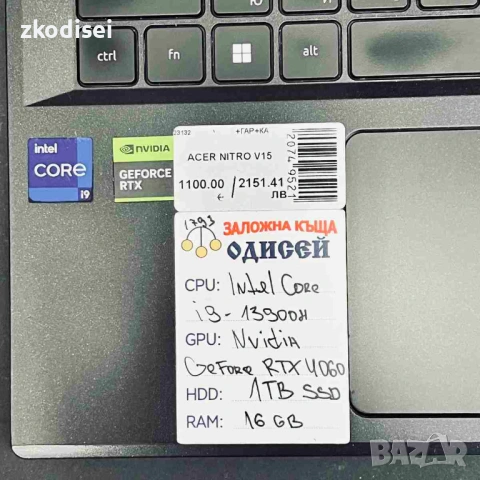 zkodisei
ctrl
fn
alt
Ю
intel
CORE
i9
NVIDIA
GEFORCE
RTX
23132
+ГАР+КА
ACER NITRO V15
1100.00 / 2151.41
€ ЛВ
2074 9521
1793
ЗАЛОЖНА КЪЩА
ОДИСЕЙ
CPU: Intel Core
i9-13900H
GPU: Nvidia
GeForce RTX 4060
HDD: 1TB SSD
RAM: 16 GB
BAZAR